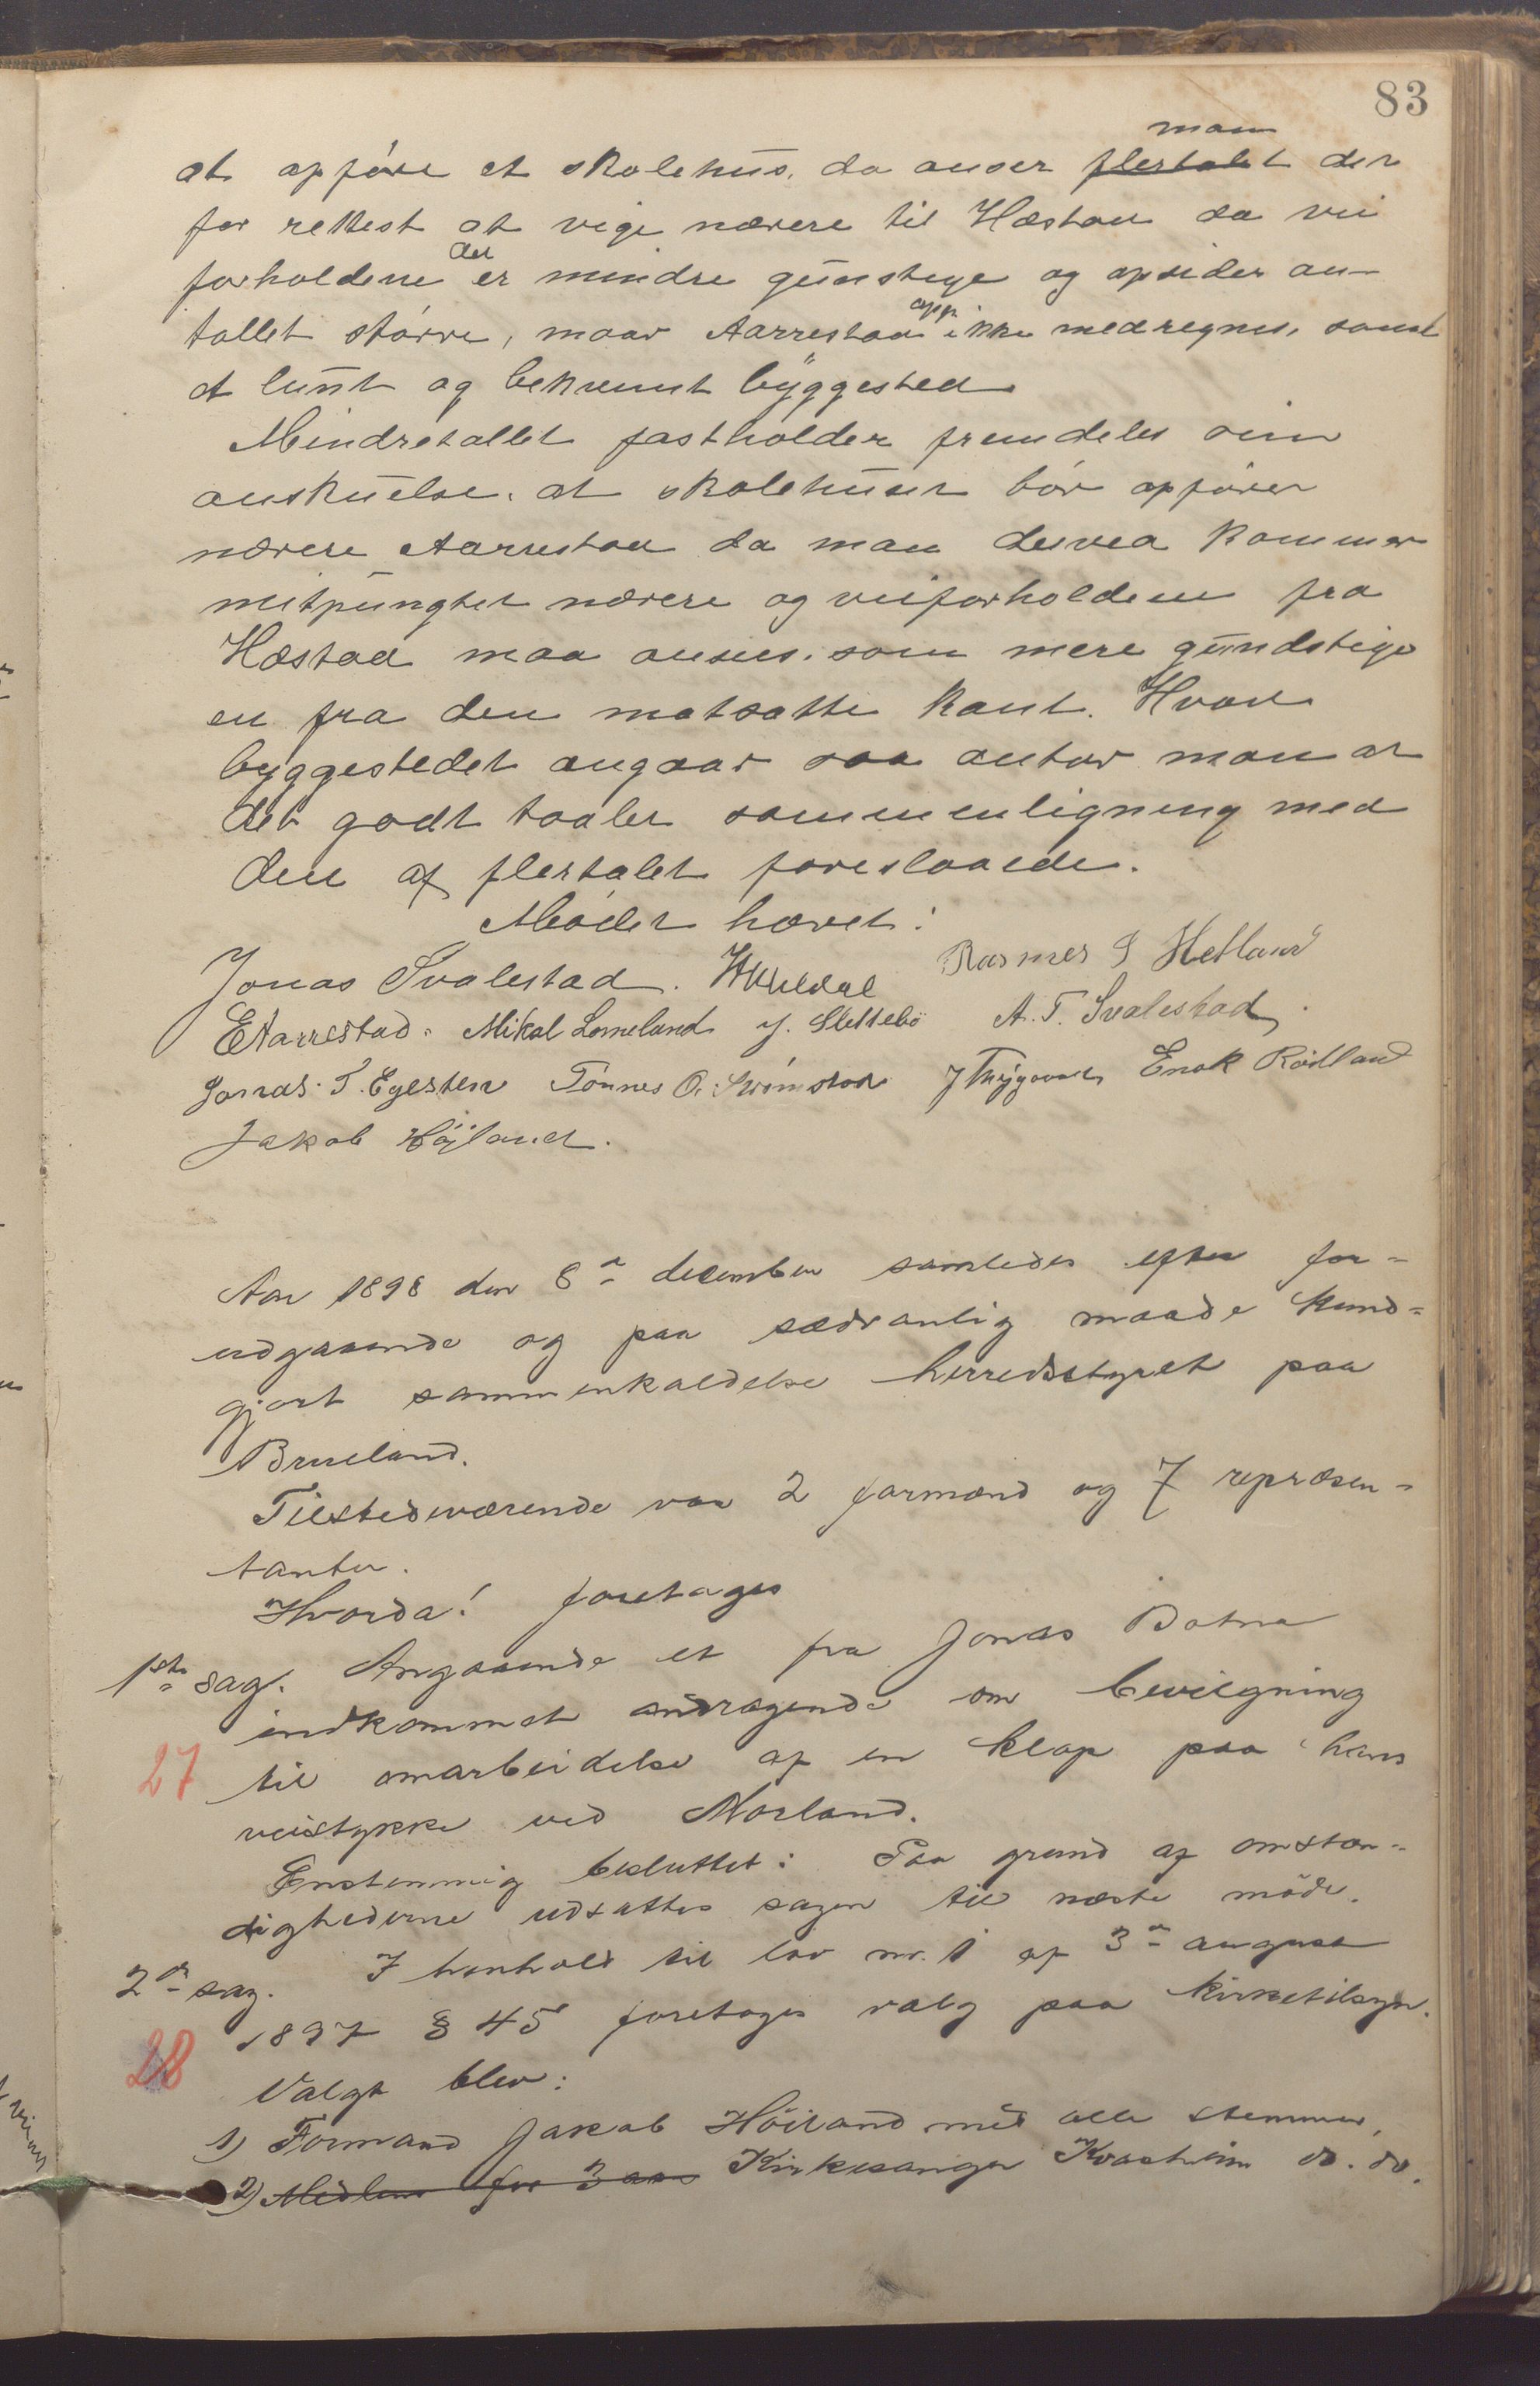 83
man
at opføre et skolehus. da anser flertalet det
for rettest at vige nærere til Hæstad da vei
der
forholdene er mindre gunstige og opsider an-
opp
tallet større, naar Aarrestad ikke medregnes, samt
et lunt og bekvemt byggested
Mindretallet fastholder fremdeles sin
anskuelse. at skolehuset bør opføres
nærere Aarrestad da man derved kommer
mitpungtet nærere og veiforholdene fra
Hæstad maa ansees. som mere gundstige
en fra den motsatte kant. Hvad
byggestedet angaar saa antar man at
det godt taaler sammenligning med
den af flertalet foreslaaede.
Mødet hævet:
Jonas Svalestad. Rasmes S Hetland
E Aarrestad. Mikal Lomeland J. Slettebö A. T. Svalestad.
Jonas. T. Egesten Tönnes O. Enok Rödland
Jakob Höjland.
Aar 1898 den 8de december samledes efter for-
udgaaende og paa sædvanlig maade kund-
gjort sammenkaldelse herredsstyret paa
Brueland.
Tilstedeværende var 2 formænd og 7 repræsen-
tanter.
Hvorda! foretages
1ste sag. Angaaende et fra Jonas Botne
indkommet andragende om bevilgning
27 til omarbeidelse af en klop paa hans
veistykke ved Morland.
Enstemmig besluttet: Paa grund af omstæn-
dighederne udsættes sagen til næste möde.
2den sag. I henhold til lov nr. 1 af 3de august
1897 § 45 foretages valg paa kirketilsyn.
28
Valgt blev:
1) Formand Jakob Höiland med alle stemmer,
2) Medlem for 3 aar Kirkesanger Kvasheim do. do.